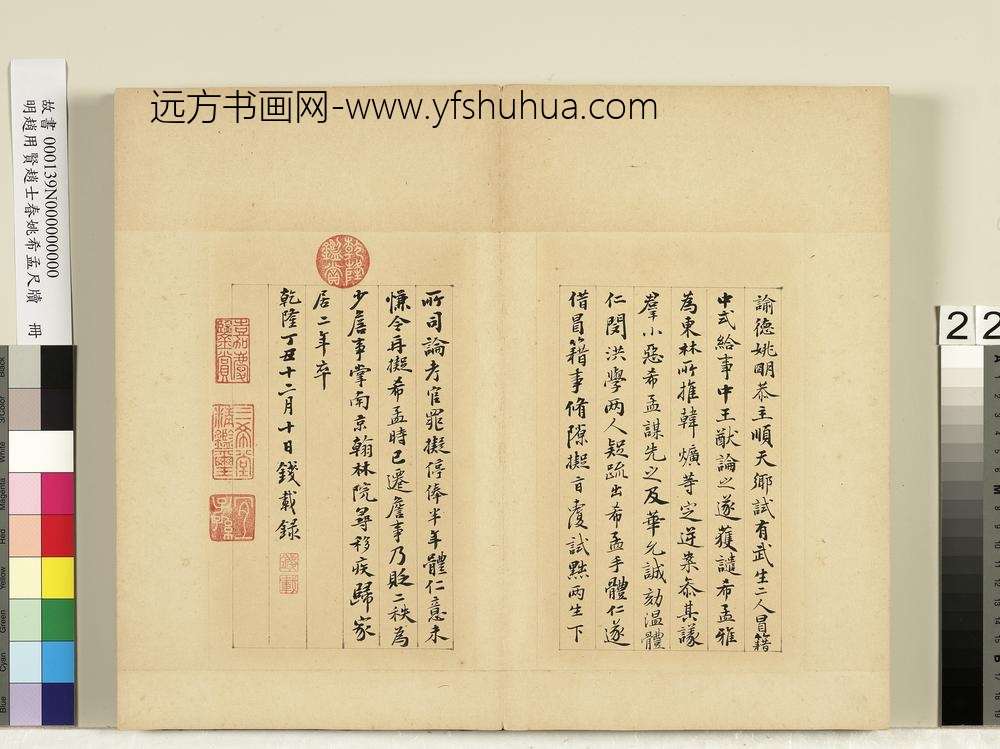 远方书画网-www.yfshuhua.com
故書 000139N00000000
明趙用賢趙士春姚希孟尺牘 冊
諭德姚明恭主順天鄉試有武生二人冒籍
中式給事中王猷論之遂獲譴希孟雅
為東林所推韓爌等定逆案叅其議
羣小惡希孟謀先之及華允誠劾溫體
仁閔洪學兩人疑疏出希孟手體仁遂
借冒籍事脩隙擬旨覆試黜兩生下
所司論考官罪擬停俸半年體仁意未
慊令再擬希孟時已遷詹事乃貶二秩為
少詹事掌南京翰林院尋移疾歸家
居二年卒
乾隆丁丑十二月十日錢載錄
乾隆鑑賞
嘉慶鑒賞
三希堂精鑑璽
宜子孫
錢載
22
Black
3/Color
White
Magenta
Red
Yellow
Green
Cyan
Blue